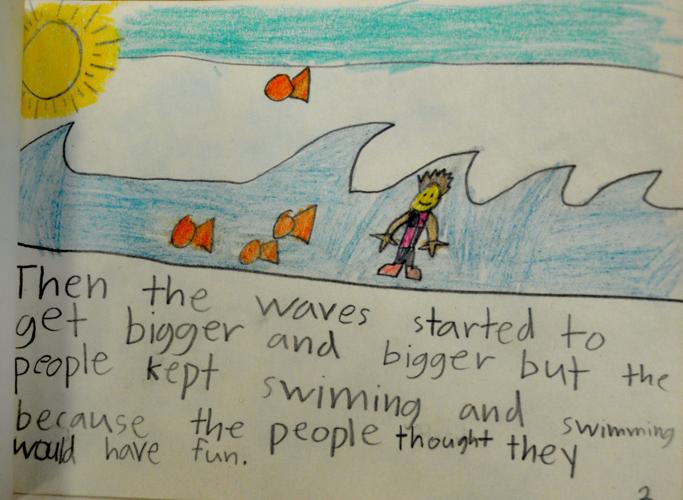 Then the waves started to
get bigger and bigger but the
people kept swiming and swimming
because the people thought they
would have fun.
2